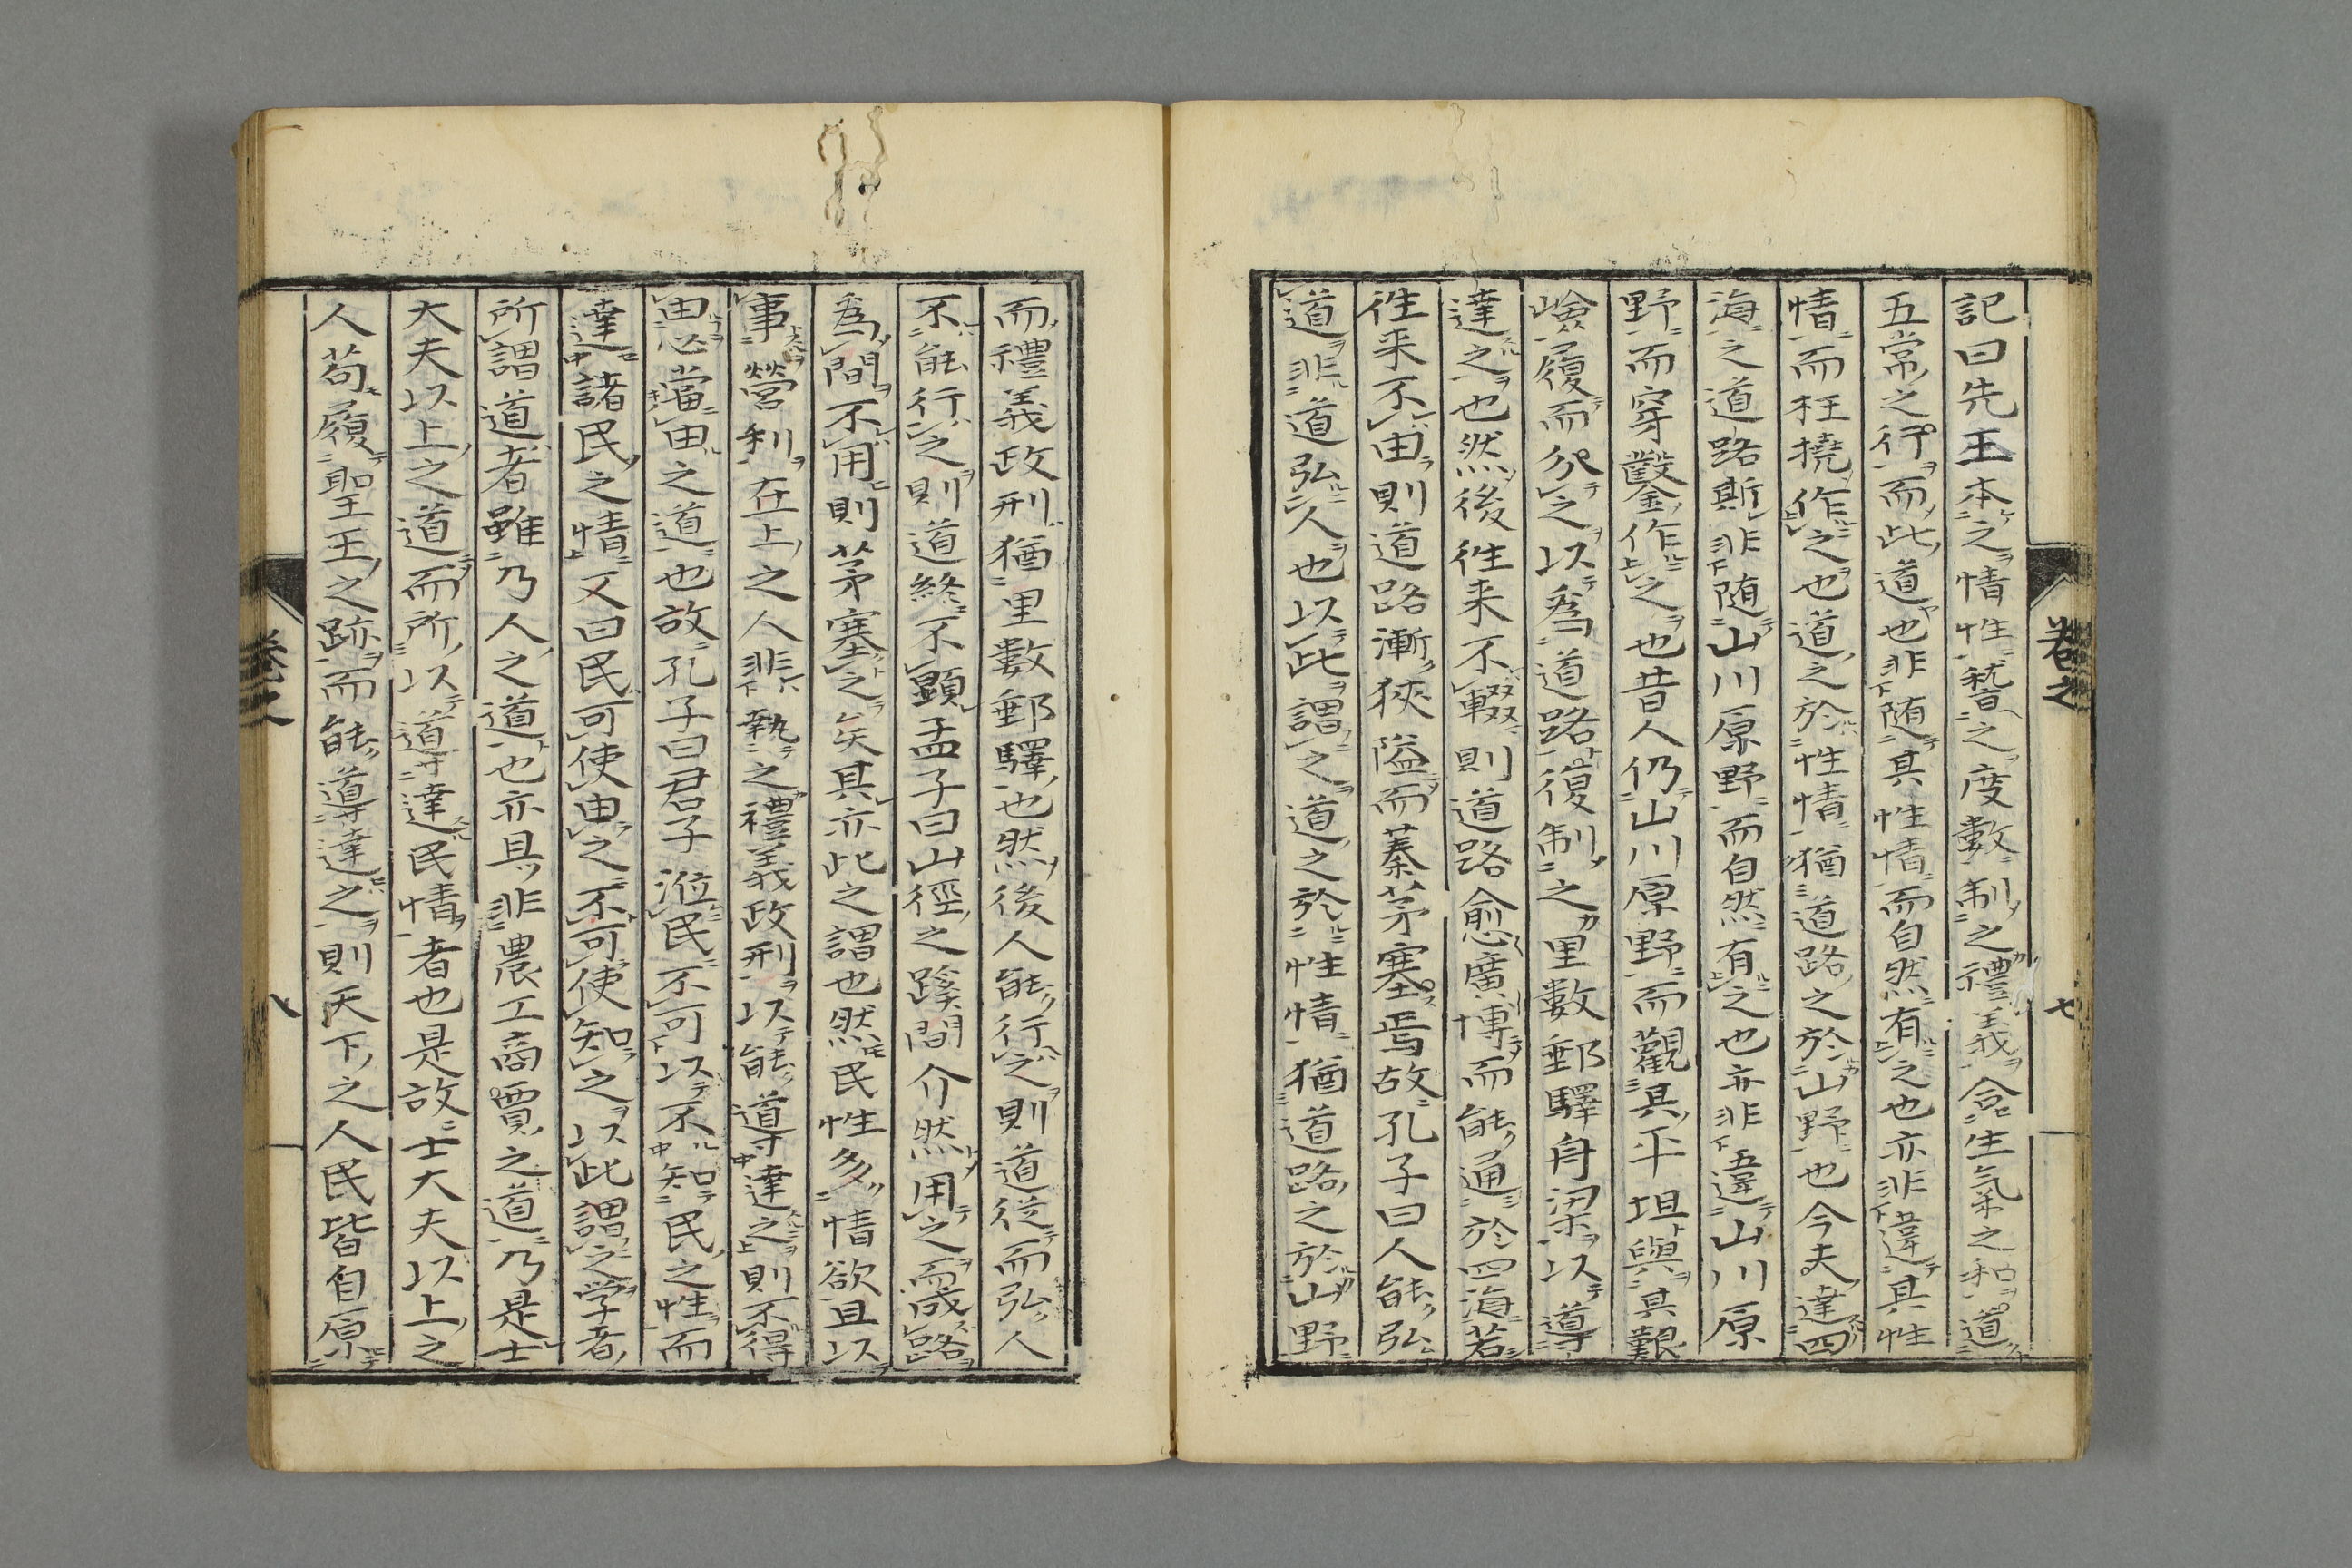 記曰先王本之情性稽之度數制之禮義合生氣之和道
五常之行而此道也非随其性情而自然有之也亦非違其性
情而枉撓作之也道之於性情猶道路之於山野也今夫達四
海之道路斯非随山川原野而自然有之也亦非違山川原
野而穿鑿作之也昔人仍山川原野而觀其平坦與其艱
嶮履而分之以爲道路復制之里數郵驛舟梁以導
達之也然後徃来不輟則道路愈廣博而能通於四海若
徃来不由則道路漸狹隘而蓁茅塞焉故孔子曰人能弘
道非道弘人也以此謂之道之於性情猶道路之於山野
而禮義政刑猶里數郵驛也然後人能行之則道従而弘人
不能行之則道終不顕孟子曰山徑之蹊間介然用之而成路
爲間不用則茅塞之矣其亦此之謂也然民性多情欲且以
事營利在上之人非執之禮義政刑以能導達之則不得
由必當由之道也故孔子曰君子涖民不可以不知民之性而
達諸民之情又曰民可使由之不可使知之以此謂之学者
所謂道者雖乃人之道也亦且非農工商賈之道乃是士
大夫以上之道而所以導達民情者也是故士大夫以上之
人苟履聖王之跡而能導達之則天下之人民皆自原
卷之
七
卷之
八